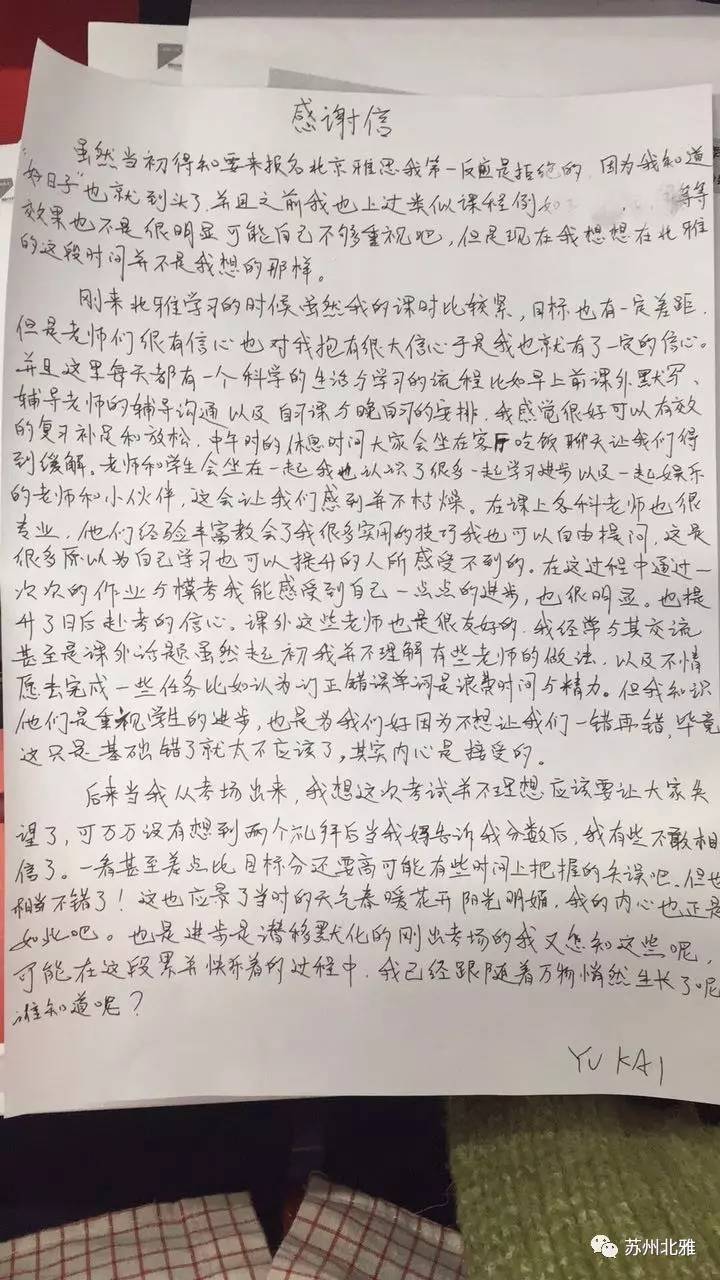 感谢信
虽然当初得知要来报名北京雅思我第一反应是拒绝的，因为我知道
“好日子”也就到头了，并且之前我也上过类似课程例如 等等
效果也不是很明显可能自己不够重视吧，但是现在我想想在北雅
的这段时间并不是我想的那样。
刚来北雅学习的时候虽然我的课时比较紧，目标也有一定差距，
但是老师们很有信心也对我抱有很大信心于是我也就有了一定的信心。
并且这里每天都有一个科学的生活与学习的流程比如早上前课外默写、
辅导老师的辅导沟通以及自习课与晚自习的安排，我感觉很好可以有效
的复习补足和放松，中午时的休息时间大家会坐在客厅吃饭聊天让我们得
到缓解。老师和学生会坐在一起我也认识了很多一起学习进步以及一起娱乐
的老师和小伙伴，这会让我们感到并不枯燥。在课上各科老师也很
专业，他们经验丰富教会了我很多实用的技巧我也可以自由提问，这是
很多所以为自己学习也可以提升的人所感受不到的。在这过程中通过一
次次的作业与模考我能感受到自己一点点的进步，也很明显。也提
升了日后赴考的信心。课外这些老师也是很友好的，我经常与其交流
甚至是课外话题虽然起初我并不理解有些老师的做法，以及不情
愿去完成一些任务比如认为订正错误单词是浪费时间与精力。但我知识
他们是重视学生的进步，也是为我们好因为不想让我们一错再错，毕竟
这只是基础错了就太不应该了，其实内心是接受的。
后来当我从考场出来，我想这次考试并不理想应该要让大家失
望了，可万万没有想到两个礼拜后当我妈告诉我分数后，我有些不敢相
信了。一看甚至差点比目标分还要高可能有些时间上把握的失误吧，但也
相当不错了！这也应景了当时的天气春暖花开阳光明媚，我的内心也正是
如此吧。也是进步是潜移默化的刚出考场的我又怎知这些呢，
可能在这段累并快乐着的过程中，我已经跟随着万物悄然生长了呢
谁知道呢？
YU KAI
苏州北雅